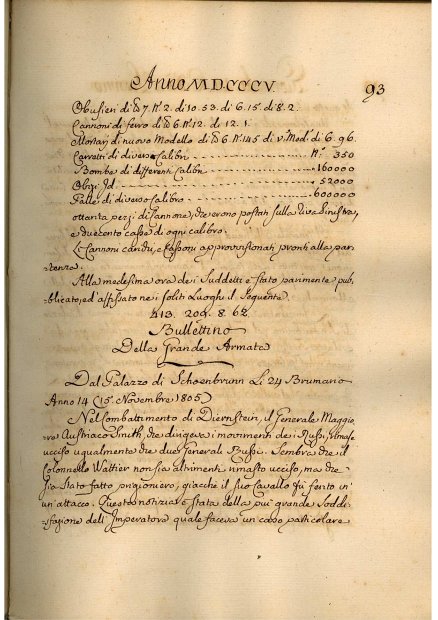 Anno MDCCCV. 93
Obusieri di lb 7. N° 2. di 10. 53. di 6. 15. di 8. 2.
Cannoni di ferro di lb 6. N° 12. di 12. 1.
Mortarj di nuovo Modello di lb 6. N° 145 di v° Mod° di 6. 96.
Carretti di diverso Calibri N° 350
Bombe di differenti Calibri 160000
Obizi Id. 52000
Palle di diverso Calibro 600000
ottanta pezzi di Cannone, che erono postati sulla riva Sinistra,
e duecento casse di ogni calibro.
Li Cannoni caridu, e Cassoni approvisionati pronti alla par-
tenza.
Alla medesima ora dei Suddetti è stato parimente pub-
blicato, ed affissato nei soliti Luoghi il Seguente.
413. 204. 8. 62.
Bullettino
Della Grande Armata
Dal Palazzo di Schoenbrunn Li 24 Brumario
Anno 14 (15. Novembre 1805.)
Nel Combattimento di Diernstein, il Generale Maggio-
re Austriaco Smith, che dirigeva i movimenti dei Russi, rimase
ucciso ugualmente che due Generali Russi. Sembra che il
Colonnello Wattier non sia altrimenti rimasto ucciso, ma che
sia stato fatto prigioniero, giacchè il suo Cavallo fù ferito in
un'attacco. Questa notizia è stata della più grande Soddi-
sfazione dell'Imperatore quale faceva un caso particolare